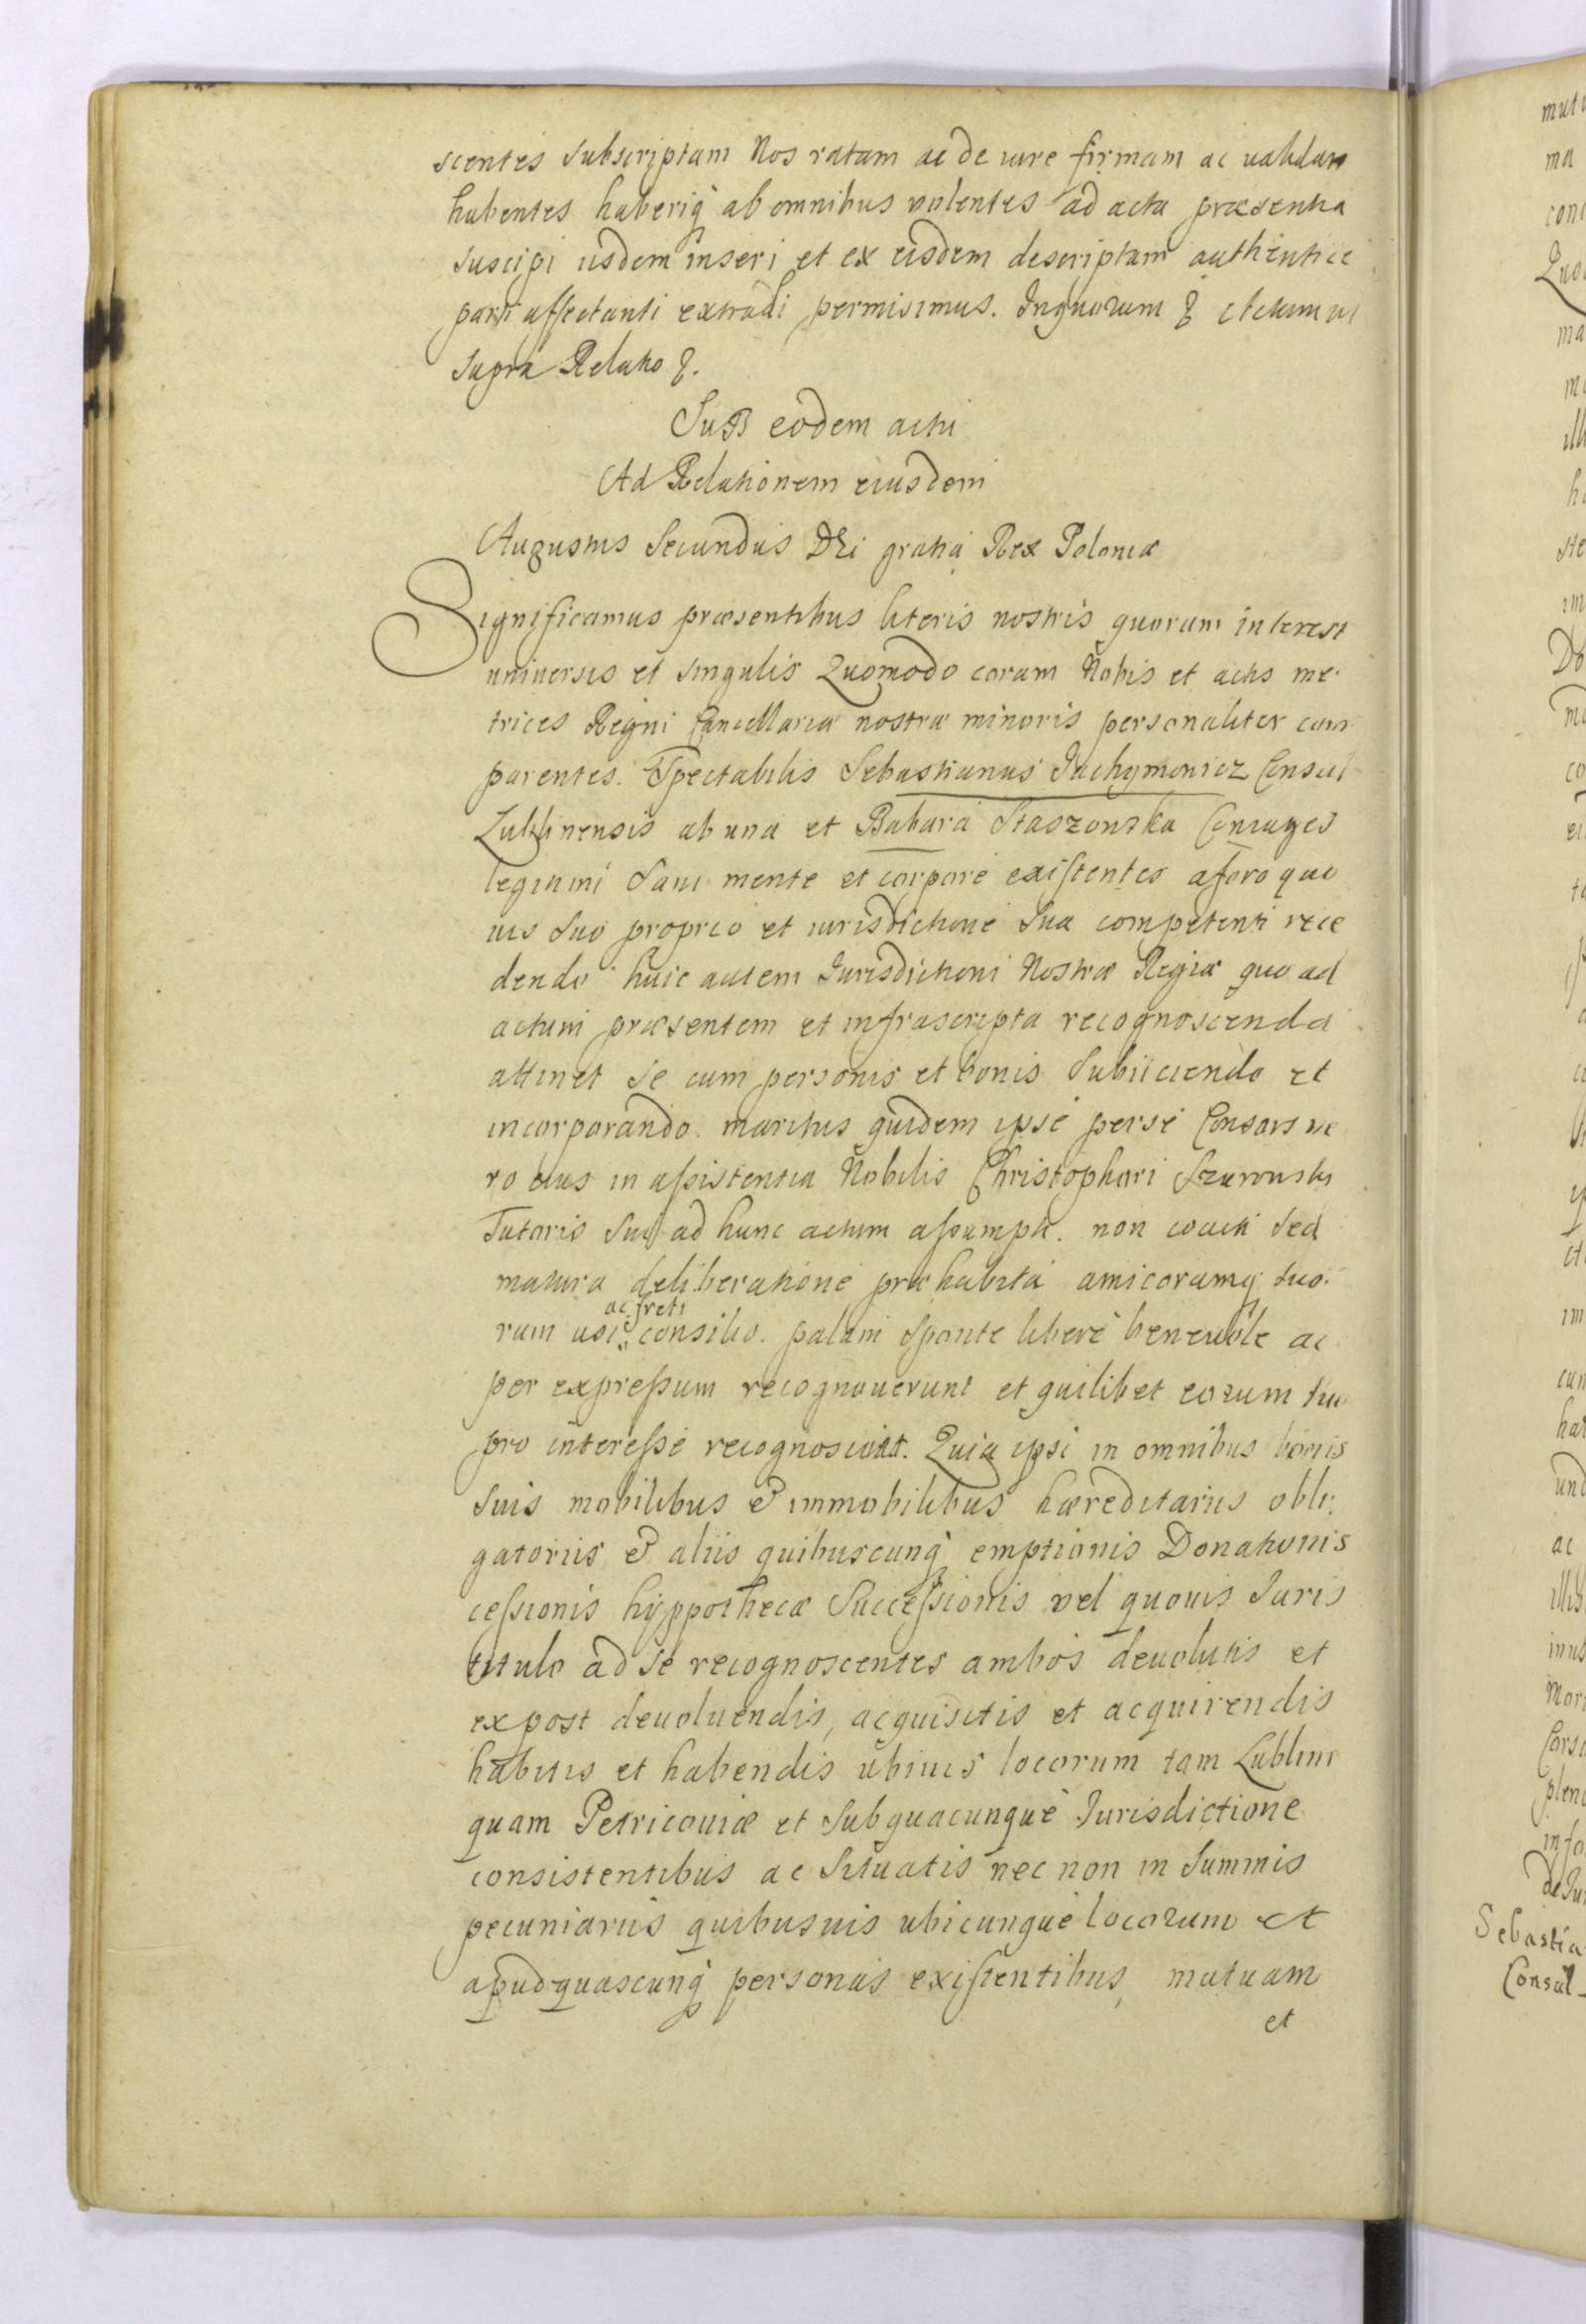 scentes subscriptam Nos ratam ac de iure firmam ac validam
habentes haberiq ab omnibus volentes ad acta præsentia
suscipi iisdem inseri et ex eisdem descriptam authentice
parti affectanti extradi permisimus. Inquorum & Actum ut
supra Relatio &.
Sub eodem actu
Ad Relationem eiusdem
Augustus Secundus Dei gratia Rex Poloniæ
Significamus præsentibus literis nostris quorum interest
universis et singulis Quomodo coram Nobis et actis me
trices Regni Cancellariæ nostræ minoris personaliter com
parentes. Spectabilis Sebastianus Jachymowicz Consul
Lublinensis ab una et Babara Staszowska Coniuges
legitimi sani mente et corpore existentes a foro quo
vis suo proprio et iurisdictione sua competenti rece
dendo huic autem Jurisdictioni Nostræ Regiæ quo ad
actum præsentem et infrascripta recognoscenda
attinet se cum personis et bonis subiiciendo et
incorporando. maritus quidem ipse perse Consors ve
ro eius in assistentia Nobilis Christophori Szurowski
Tutoris sui ad hunc actum assumpti. non coacti sed
matura deliberatione præhabita amicorumq suo
rum usi ac freti consilio. palam sponte libere benevole ac
per expressum recognoverunt et quilibet eorum suo
pro interesse recognoscunt. Quia ipsi in omnibus bonis
suis mobilibus & immobilibus hæreditariis obli
gatoriis & aliis quibuscunq emptionis Donationis
cessionis hyppothecæ Successionis vel quovis Juris
titulo ad se recognoscentes ambos devolutis et
expost devoluendis, acquisitis et acquirendis
habitis et habendis ubivis locorum tam Lublini
quam Petricoviæ et subquacunque Jurisdictione
consistentibus ac situatis nec non in summis
pecuniariis quibusvis ubicunque locorum et
apudquascunq personas existentibus, mutuam
et
Sebastia
Consul